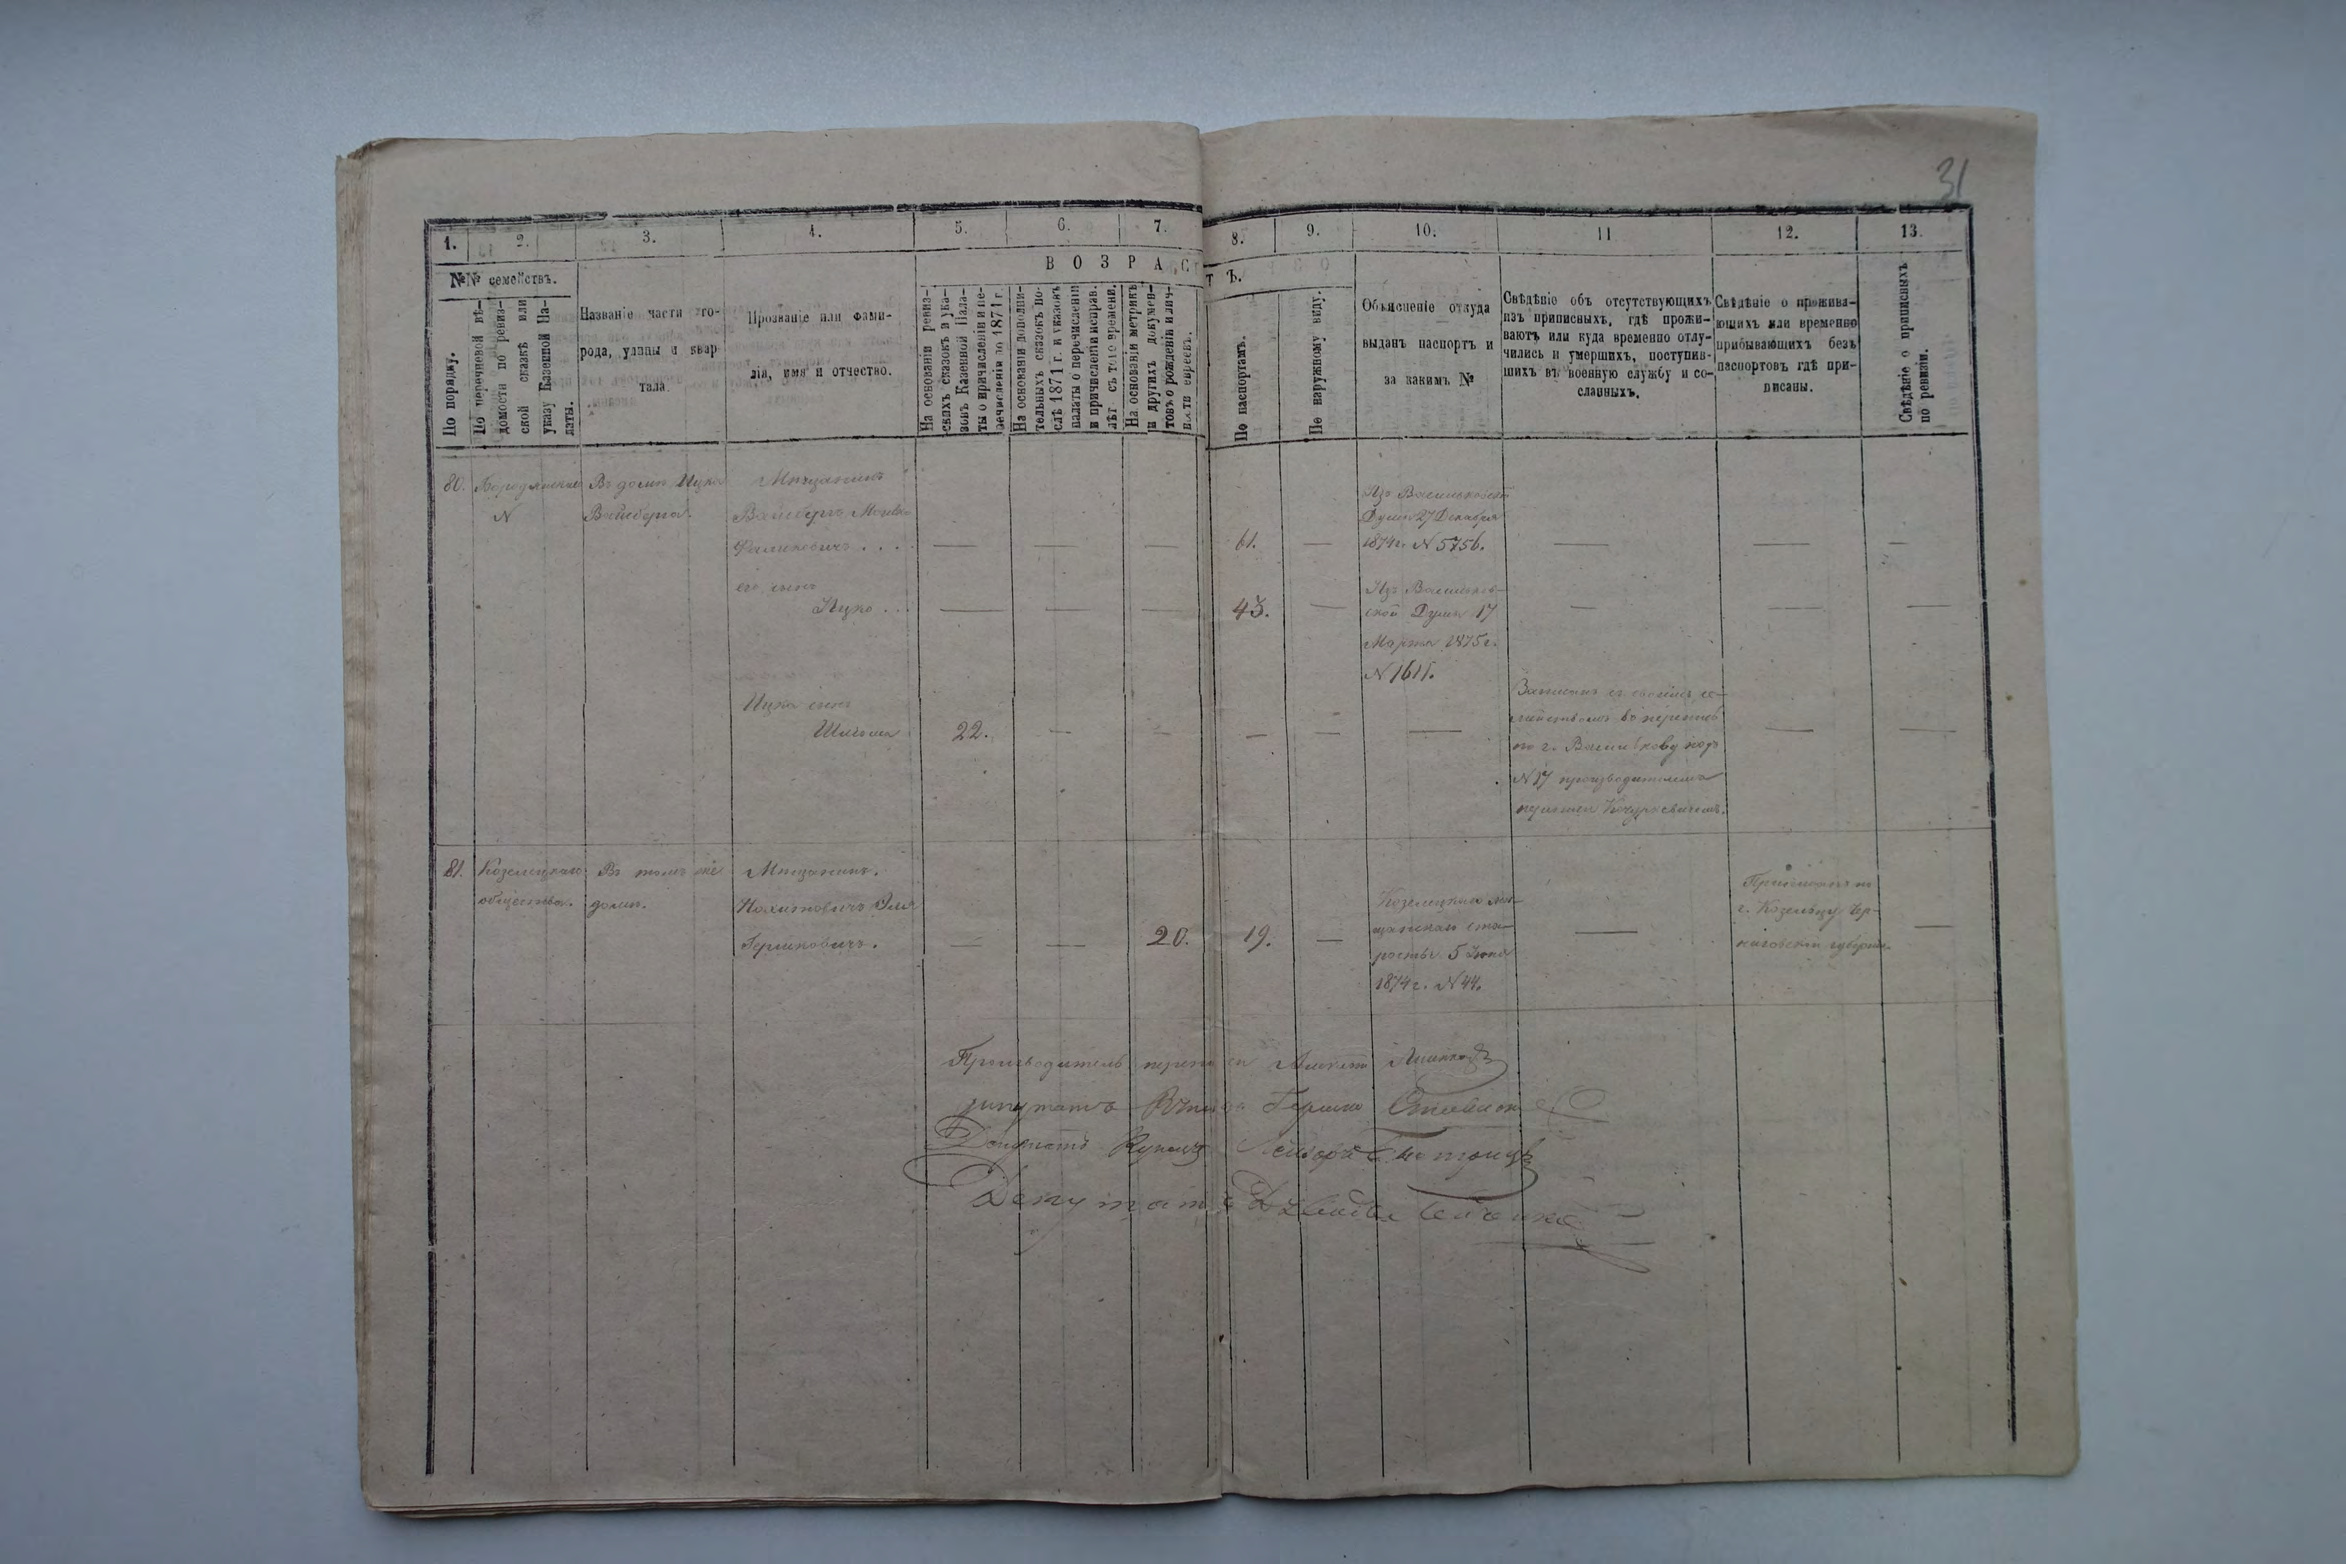 31
1. 2. 3. 4. 5. 6. 7. 8. 9. 10. 11 12. 13.
№№ семействъ.
В О З Р А С Т Ъ.
По порядку.
По перечневой вѣ-
домости по ревиз-
ской сказкѣ или
указу Казенной Па-
латы.
Названіе части го-
рода, улицы и квар
тала.
Прозваніе или фами-
лія, имя и отчество.
На основаніи ревиз-
скихъ сказокъ и ука-
зовъ Казенной Пала-
ты о причисленіи и пе-
речисленіи до 1871 г.
На основаніи дополни-
тельныхъ сказокъ по-
слѣ 1871 г. и указовъ
палаты о перечисленіи
и причисленіи исправ.
лѣт съ того времени.
На основаніи метрикъ
и другихъ докумен-
товъ о рожденіи и лич-
ности евреевъ.
По паспортамъ.
По наружному виду.
Объясненіе откуда
выданъ паспортъ и
за какимъ №
Свѣдѣніе объ отсутствующихъ
изъ приписныхъ, гдѣ прожи-
ваютъ или куда временно отлу-
чились и умершихъ, поступив-
шихъ въ военную службу и со-
сланныхъ.
Свѣдѣніе о прожива-
ющихъ или временно
прибывающихъ безъ
паспортовъ гдѣ при-
писаны.
Свѣдѣніе о приписныхъ
по ревизіи.
80.
N
Въ домѣ Ицка
Вайсберга.
Мѣщанинъ
Вайсбергъ Мошко
его сынъ
Ицко . . .
Ицка сынъ
22.
61.
43.
Изъ Васильковской
Думы 27 Декабря
1874г. N 5756.
Изъ Васильков-
ской Думы 17
Марта 1875 г.
N 1611.
Записанъ съ своимъ се-
мействомъ въ перепись
по г. Василькову подъ
N 17 производителемъ
81.
Козелецкаго
общества.
Въ томъ же
домѣ.
Мѣщанинъ.
Гершковичъ.
20.
19.
Козелецкаго мѣ-
щанскаго ста-
росты 5 Іюня
1874 г. N 44.
Приписанъ по
г. Козельцу Чер-
ниговской губерніи.
Производитель переписи
депутатъ Гершко
Депутатъ Купецъ
Депутатъ